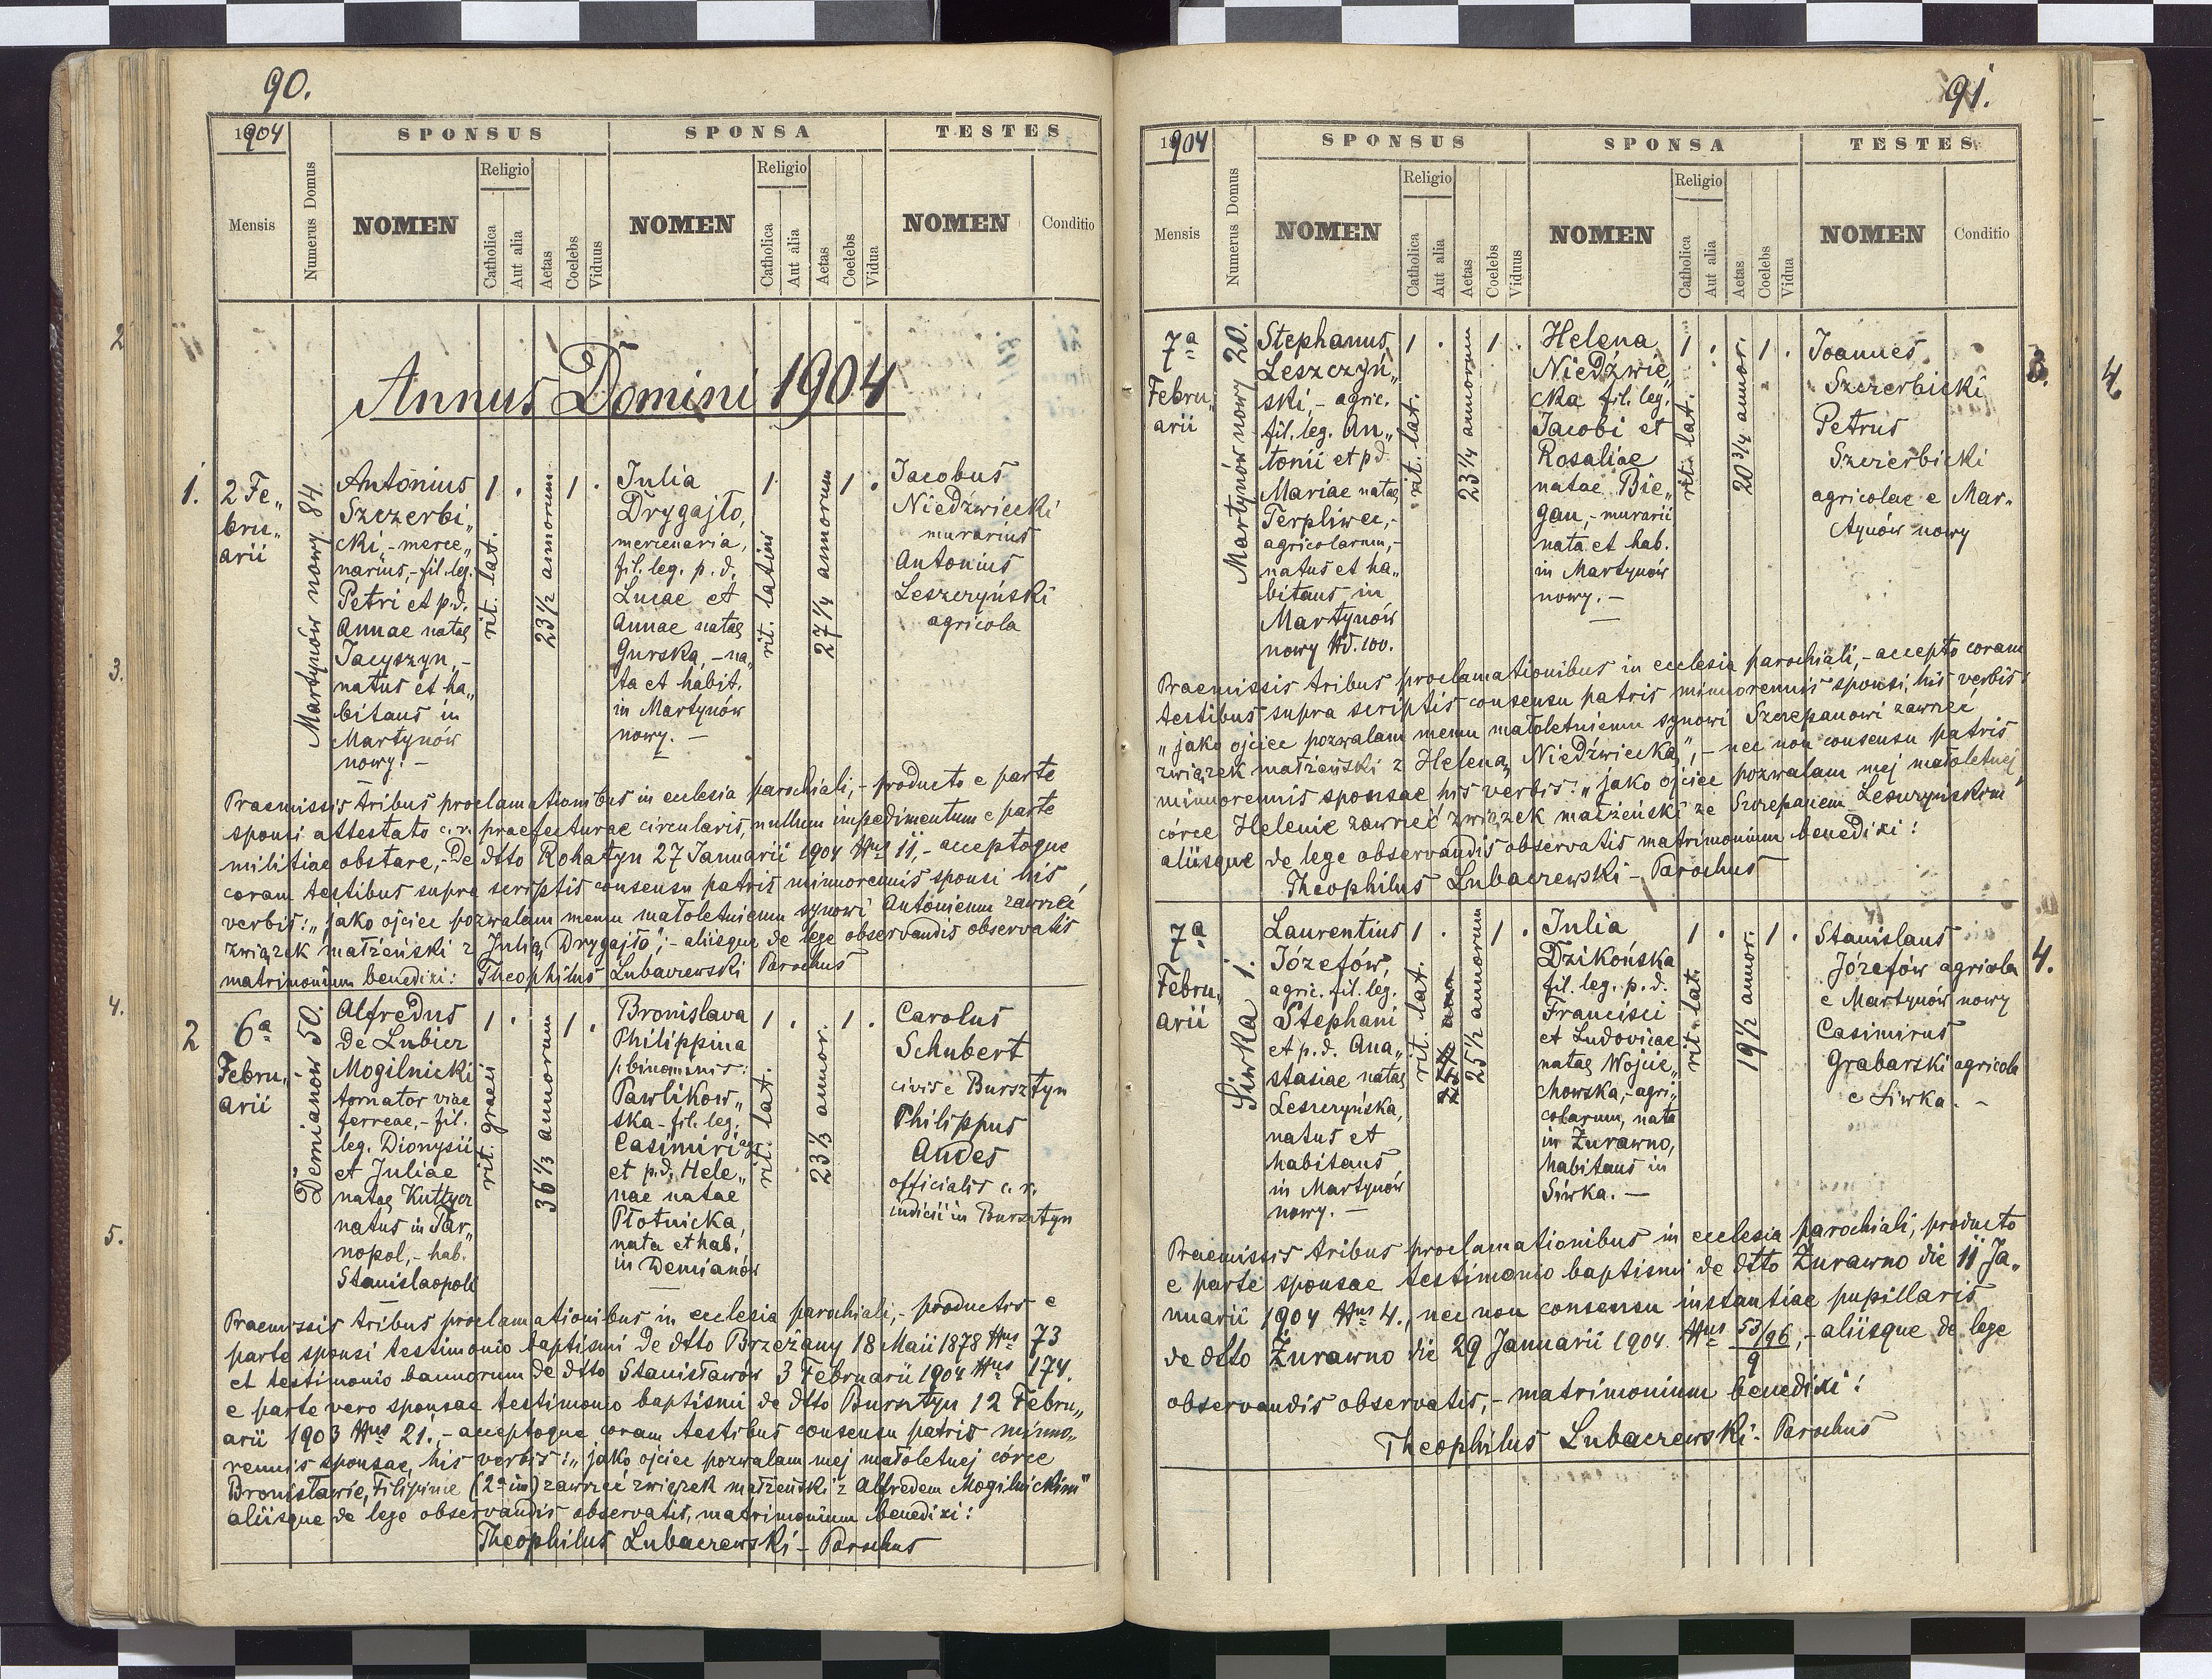 90.
1904
SPONSUS
SPONSA
TESTES
Mensis
Numerus Domus
NOMEN
Religio
Catholica
Aut alia
Aetas
Coelebs
Viduus
NOMEN
Religio
Catholica
Aut alia
Aetas
Coelebs
Vidua
NOMEN
Conditio
Annus Domini 1904
1.
2 Fe„
bru„
arii
Martynów nowy 84.
Antonius
Szczerbi„
cki, - merce„
narius, - fil. leg.
Petri et p.d.
Annae natae
Jacyszyn, -
natus et ha„
bitans in
Martynów
nowy. -
1 .
rit. lat.
23 1/2 annorum
1 .
Julia
Drygajło,
mercenaria,
fil. leg. p. d.
Lucae et
Annae natae
Gurska, - na„
ta et habit.
in Martynów
nowy. -
1
rit. latini
27 1/4 annorum
1 .
Jacobus
Niedźwiecki
murarius
Antonius
Leszczyński
agricola
Praemissis tribus proclamationibus in ecclesia parochiali, - producto e parte
sponsi attestato c. r. praefecturae circularis, nullum impedimentum e parte
militiae obstare, - de dtto Rohatyn 27 Januarii 1904 Nus 11, - acceptoque
coram testibus supra scriptis consensu patris minorennis sponsi his
verbis: „jako ojciec pozwalam memu małoletniemu synowi Antoniemu zawrzeć
związek małżeński z Julią Drygajło": - aliisque de lege observandis observatis
matrimonium benedixi: Theophilus Lubaczewski Parochus
2
6a
Febru„
arii
Demianów 50.
Alfredus
de Lubicz
Mogilnicki
tornator viae
ferreae, - fil.
leg. Dionysii
et Juliae
natae
natus in Tar„
nopol, - hab.
Stanislaopoli
1 .
rit. graeci
36 1/3 annorum
1 .
Bronislava
Philippina
binominis:
Pawlikow„
ska - fil. leg.
Casimiri agr.
et p.d. Hele„
nae natae
Płotnicka,
nata et hab.
in Demianów
1 .
rit. lat.
23 1/3 annor.
1 .
Carolus
Schubert
civis e Bursztyn
Philippus
Andes
officialis c. r.
iudicii in Bursztyn
Praemissis tribus proclamationibus in ecclesia parochiali, - productis e
parte sponsi testimonio baptismi de dtto Brzeżany 18 Maii 1878 Nus 73
et testimonio bannorum de dtto Stanisławów 3 Februarii 1904 Nus 174.
e parte vero sponsae testimonio baptismi de dtto Bursztyn 12 Febru„
arii 1903 Nus 21., - acceptoque coram testibus consensu patris mino„
rennis sponsae, his verbis: „jako ojciec pozwalam mej małoletniej córce
Bronisławie, Filipinie (2a im) zawrzeć związek małżeński z Alfredem Mogilnickim"
aliisque de lege observandis observatis, matrimonium benedixi:
Theophilus Lubaczewski - Parochus
91.
1904
SPONSUS
SPONSA
TESTES
Mensis
Numerus Domus
NOMEN
Religio
Catholica
Aut alia
Aetas
Coelebs
Viduus
NOMEN
Religio
Catholica
Aut alia
Aetas
Coelebs
Vidua
NOMEN
Conditio
7a
Febru„
arii
Martynów nowy 20.
Stephanus
Leszczyń„
ski, - agric.
fil. leg. An„
tonii et p.d.
Mariae natae
Terpliwec, -
agricolarum, -
natus et ha„
bitans in
Martynów
nowy Nd. 100.
1 .
rit. lat.
23 1/4 annorum
1 .
Helena
Niedźwie„
cka fil. leg.
Jacobi et
Rosaliae
natae Bie„
gan, - murarii
nata et hab.
in Martynów
nowy. -
1 .
rit. lat.
20 3/4 annor.
1 .
Joannes
Szczerbicki
Petrus
Szczerbicki
agricolae e Mar„
tynów nowy
3.
Praemissis tribus proclamationibus in ecclesia parochiali, - accepto coram
testibus supra scriptis consensu patris minorennis sponsi, his verbis:
„jako ojciec pozwalam memu małoletniemu synowi Szczepanowi zawrzeć
związek małżeński z Heleną Niedźwiecką", - nec non consensu patris
minorennis sponsae his verbis: „jako ojciec pozwalam mej małoletniej
córce Helenie zawrzeć związek małżeński ze Szczepanem Leszczyńskim"
aliisque de lege observandis observatis matrimonium benedixi:
Theophilus Lubaczewski - Parochus
7a
Febru„
arii
Siwka 1.
Laurentius
Józefów,
agric. fil. leg.
Stephani
et p.d. Ana„
stasiae natae
Leszczyńska,
natus et
habitans
in Martynów
nowy. -
1 .
rit. lat.
25 1/2 annorum
1 .
Julia
Dzikońska
fil. leg. p. d.
Francisci
et Ludovicae
natae Wojcie„
chowska, - agri„
colarum, nata
in Żurawno,
habitans in
Siwka. -
1 .
rit. lat.
19 1/2 annor.
1 .
Stanislaus
Józefów agricola
e Martynów nowy
Casimirus
Grabarski agricola
e Siwka. -
4.
Praemissis tribus proclamationibus in ecclesia parochiali, producto
e parte sponsae testimonio baptismi de dtto Żurawno die 11 Ja„
nuarii 1904 Nus 4., nec non consensu instantiae pupillaris
de dtto Żurawno die 29 Januarii 1904. Nus 53/96/9, - aliisque de lege
observandis observatis, - matrimonium benedixi:
Theophilus Lubaczewski - Parochus
2
3.
4.
5.
4